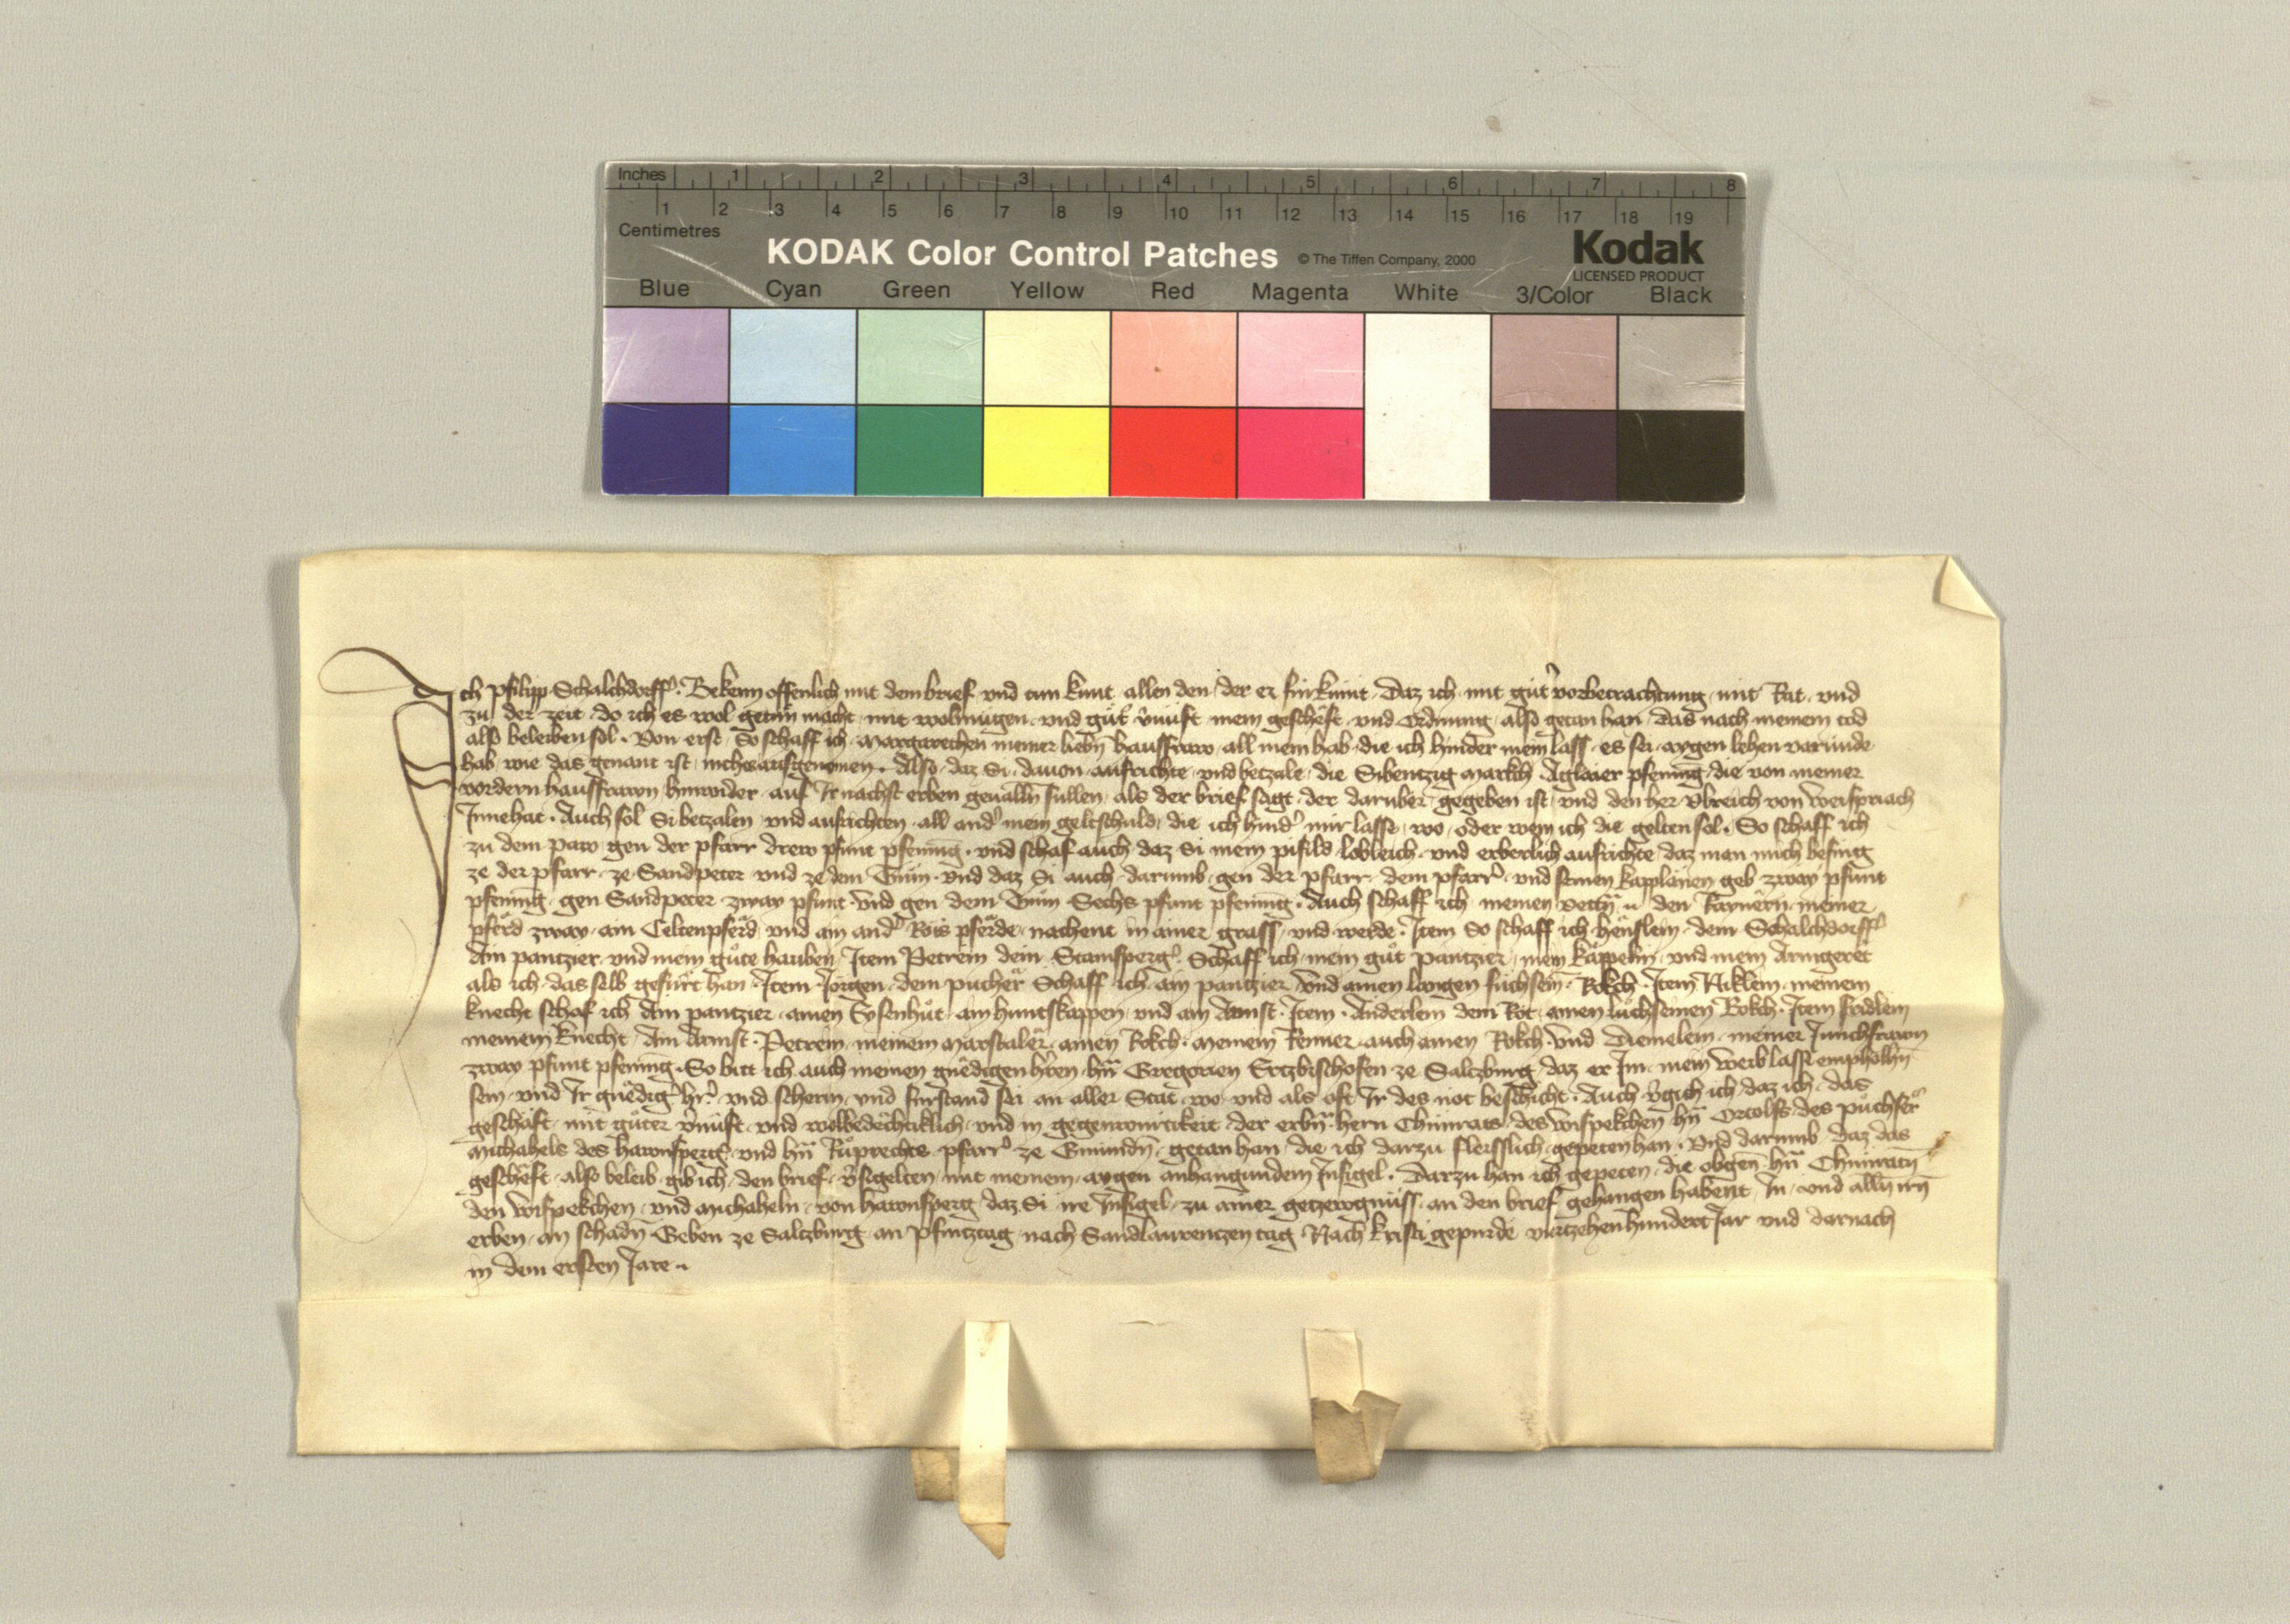 Inches 1 2 3 4 5 6 7 8
1 2 3 4 5 6 7 8 9 10 11 12 13 14 15 16 17 18 19
Centimetres
KODAK Color Control Patches © The Tiffen Company, 2000 Kodak
LICENSED PRODUCT
Blue Cyan Green Yellow Red Magenta White 3/Color Black
Ich Philipp Schalchdorffer. Bekenn offenlich mit dem brief und tun kunt allen den der er fürkümt Daz ich mit guter vorbetrachtung mit Rat und
zu der zeit do ich es wol getun macht mit wolmügen und güt vnüft mein geschêft und Ordnung also getan han das nach meinem tod
also beleiben sol. Von erst So schaff ich Margarethen meiner liebn hausfraw all mein hab die ich hinder mein lass es sei aygen lehen varunde
hab wie das genant ist nichts ausgenomen. Also daz Si davon aufrichte und betzale die Sibentzig markh Aglaier pfening die von meiner
vordern hausfrawn hinwider auf Ir nachst erben geualln sullen als der brief sagt der daruber gegeben ist und den her Vlreich von Weispriach
Innehat. Auch sol Si betzalen und aufrichten all and mein geltschuld die ich hind mir lasse wo oder wem ich die gelten sol. So schaff ich
zu dem paw gen der pfarr drew pfunt pfening und schaf auch daz Si mein pifild lobleich und erberlich aufrichte daz man mich besing
ze der pfarr ze Sandpeter und ze dem Tum und daz Si auch darumb gen der pfarr dem pfarr und seinen kapplanen geb zway pfunt
pfening gen Sandpeter zway pfunt und gen dem Tum Sechs pfunt pfening. Auch schaff ich meinen vettn den Raynern meiner
pferd zway ain Celtenpferd und ain and Rois pferde nachent in ainer grass und werde. Item So schaff ich henslein dem Schalchdorff
Ain pantzier und mein gute hauben Item Petrein dem Stamsperg Schaff ich mein gut pantzier mein kappelin und mein Armgeret
als ich das selb gefürt han. Item Jorgen dem pucher Schaff ich ain pantzier und ainen langen füchsein Rokch. Item Niklein meinem
knecht schaf ich Ain pantzier ainen Eysenhut ain huntskappen und ain Armst. Item Anderlein dem Rot ainen luchseinen Rokch. Item fridlein
meinem knecht Ain Armst. Petrein meinem Marstaler ainen Rokch. meinem Renner auch ainen Rokch und Diemelein meiner Junchfrawn
zway pfunt pfening. So bitt ich auch meinen gnêdigen hren hn Gregorien Ertzbischofen ze Saltzburg daz er Im mein weib lasse empholhn
sein und Ir gnêdig hr und scherm und fürstand sei an aller Stat wo und als oft Ir des not beschicht. Auch vgich ich daz ich das
geschäft mit guter vnüft und wolbedêchtiklich und in gegenwürtikeit der erbn hern Chunrats des Wispekchen hn Ortolfs des puchser
Michahels des hawnsperg und hn Ruprechts pfarr ze Gmundn getan han die ich darzu fleissiklich gepeten han. Und darumb daz das
geschêft also beleib gib ich den brief vsigelten mit meinem aygen anhangundem Insigel. Darzu han ich gepeten die obgen hn Chunratn
den Wispekchen und Michaheln von hawnsperg daz Si ire Insigel zu ainer getzewgnüss an den brief gehangen habent In und alln irn
erben an schadn Geben ze Saltzburg an Pfintztag nach Sandlaurentzen tag Nach kristi gepurde viertzehenhundert Jar und darnach
in dem ersten Jare